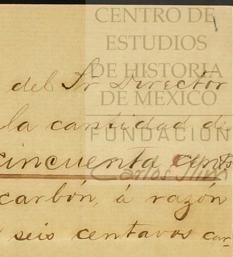 CENTRO DE
ESTUDIOS
DE HISTORIA
DE MÉXICO
FUNDACIÓN
Carlos Slim
del Sr Director
la cantidad d
cincuenta cents
carbón, á razón
seis centavos car-